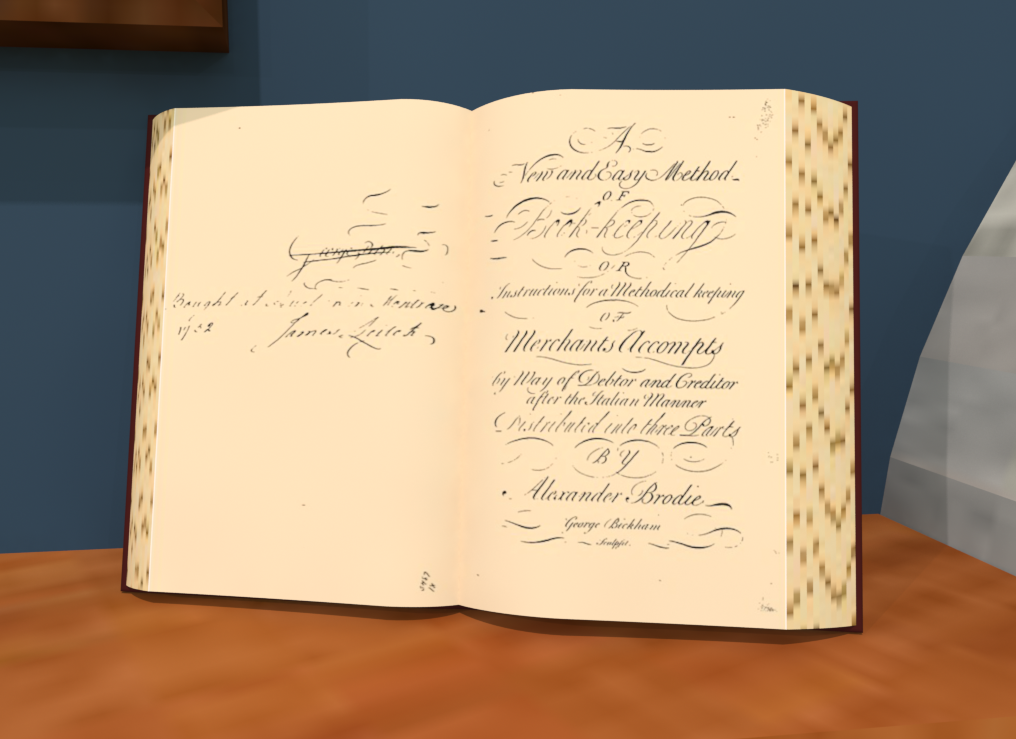 Bought at in Montrose
1752 James Leitch
A
New and Easy Method
OF
Book-keeping
OR
Instructions for a Methodical keeping
OF
Merchants Accompts
by Way of Debtor and Creditor
after the Italian Manner
Distributed into three Parts
BY
Alexander Brodie
George Bickham
Sculpsit.